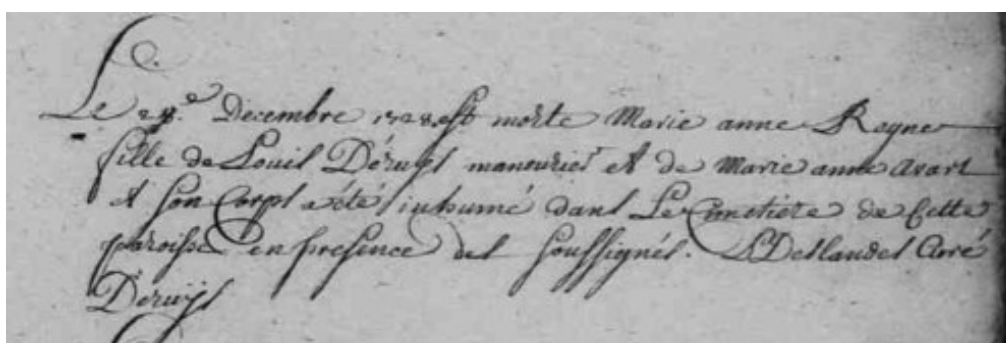 Le 28.e Decembre 1728 est morte Marie anne Reyne
fille de Louis Déruys maneuvrier et de Marie anne Avart
et son Corps a été inhumé dans Le Cimetiere de Cette
paroisse en presence des soussignés. Deslandes Curé
Déruys